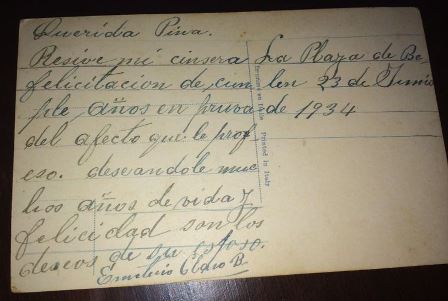 Querida Pina.
Resive mi cinsera
felicitacion de cum
ple años en pruva
del afecto que le prof
eso. deseandole muc
hos años de vida y
felicidad son los
deseos de su esposo.
Emilio B.
La Plaza de Be
len 23 de Junio
de 1934
Printed in Italy